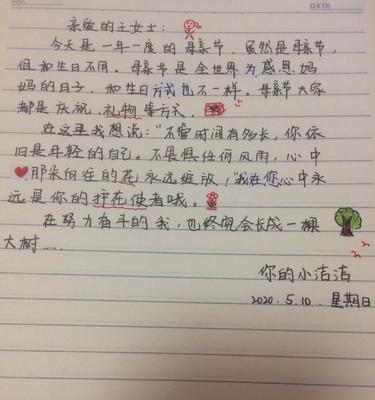 DATE
亲爱的王女士：
今天是一年一度的母亲节，虽然是母亲节，
但和生日不同。母亲节是全世界为感恩妈
妈的日子，和生日方式也不一样。母亲节大家
都是庆祝，礼物等方式，
在这里我想说：“不管时间有多长，你依
旧是年轻的自己。不畏惧任何风雨，心中
那朵向往的花永远绽放，我在您心中永
远是你的护花使者哦。
在努力奋斗的我，也终究会长成一棵
大树……
你的小洁洁
2020.5.10 星期日